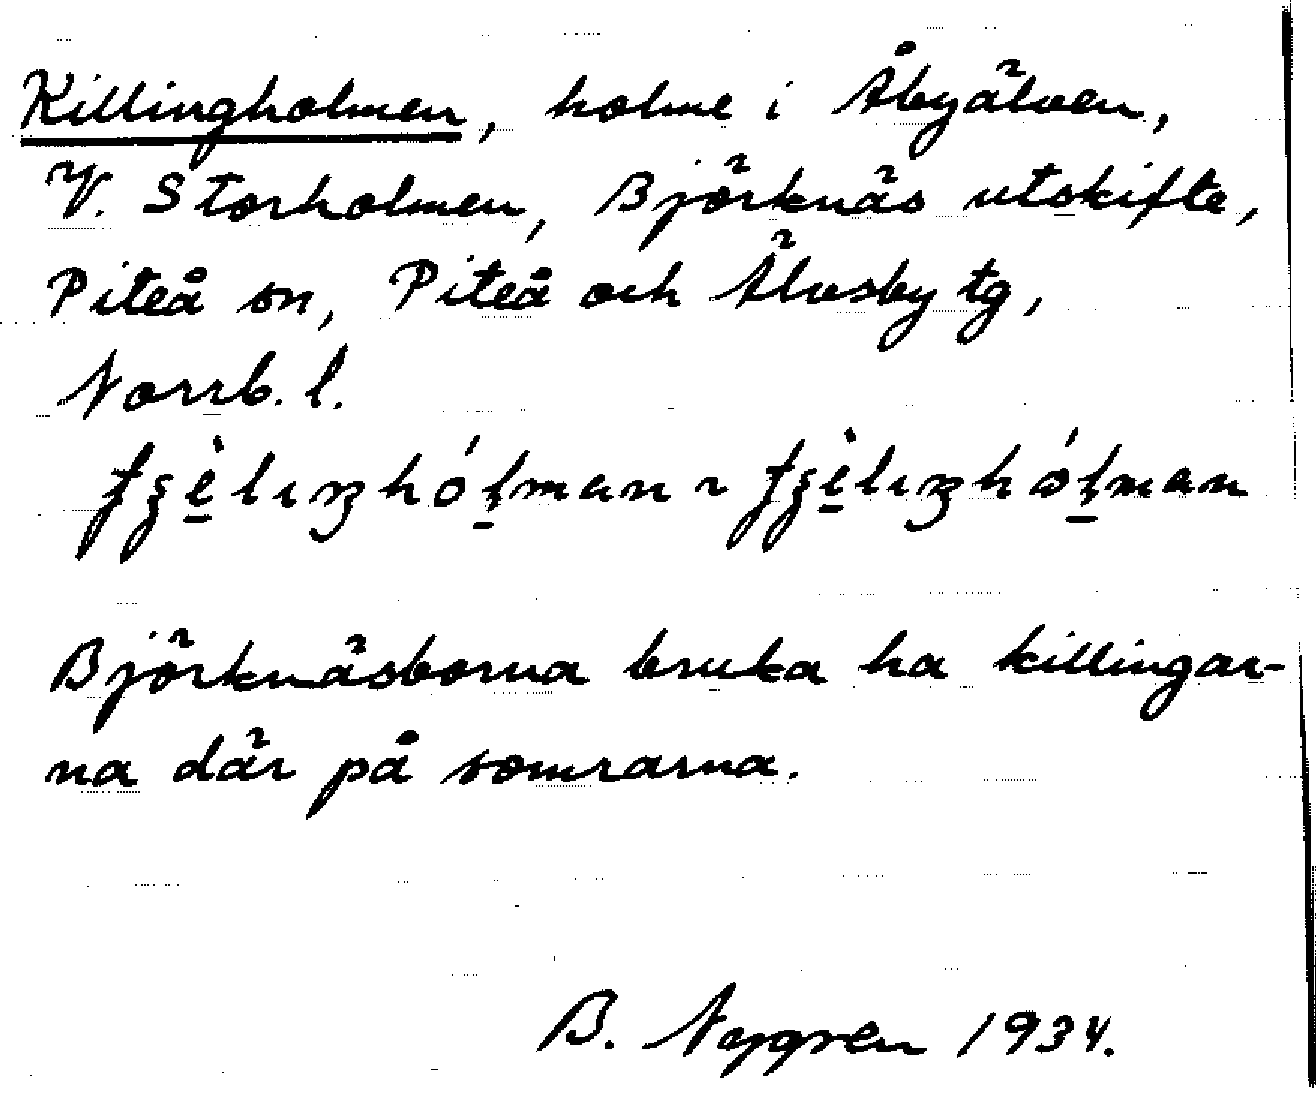 Killingholmen, holme i Åbyälven,
V. Storholmen, Björknäs utskifte,
Piteå sn, Piteå och Älvsby tg,
Norrb. l.
Björknäsborna bruka ha killingar-
na där på somrarna.
B. Nygren 1934.